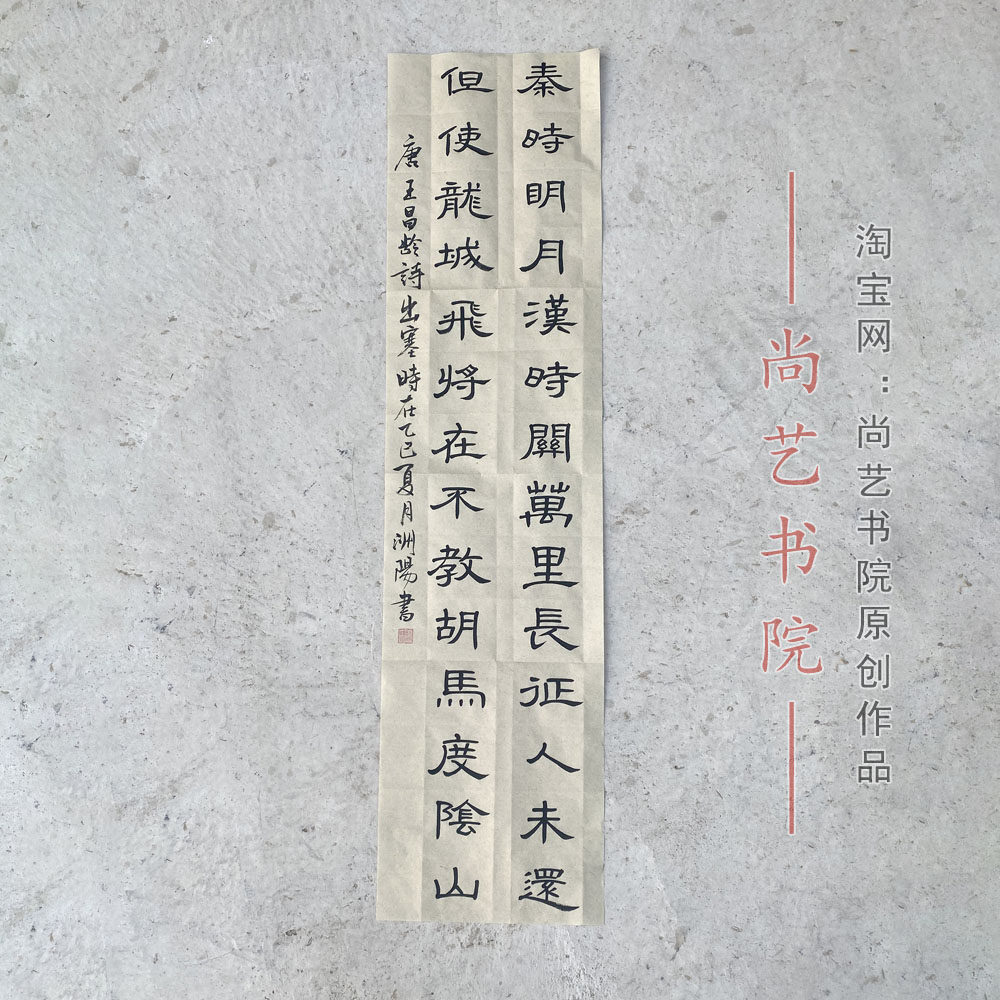 秦時明月漢時關萬里長征人未還
但使龍城飛將在不教胡馬度陰山
唐王昌齡詩出塞時在乙巳夏月洲陽書
尚艺书院
淘宝网：尚艺书院原创作品